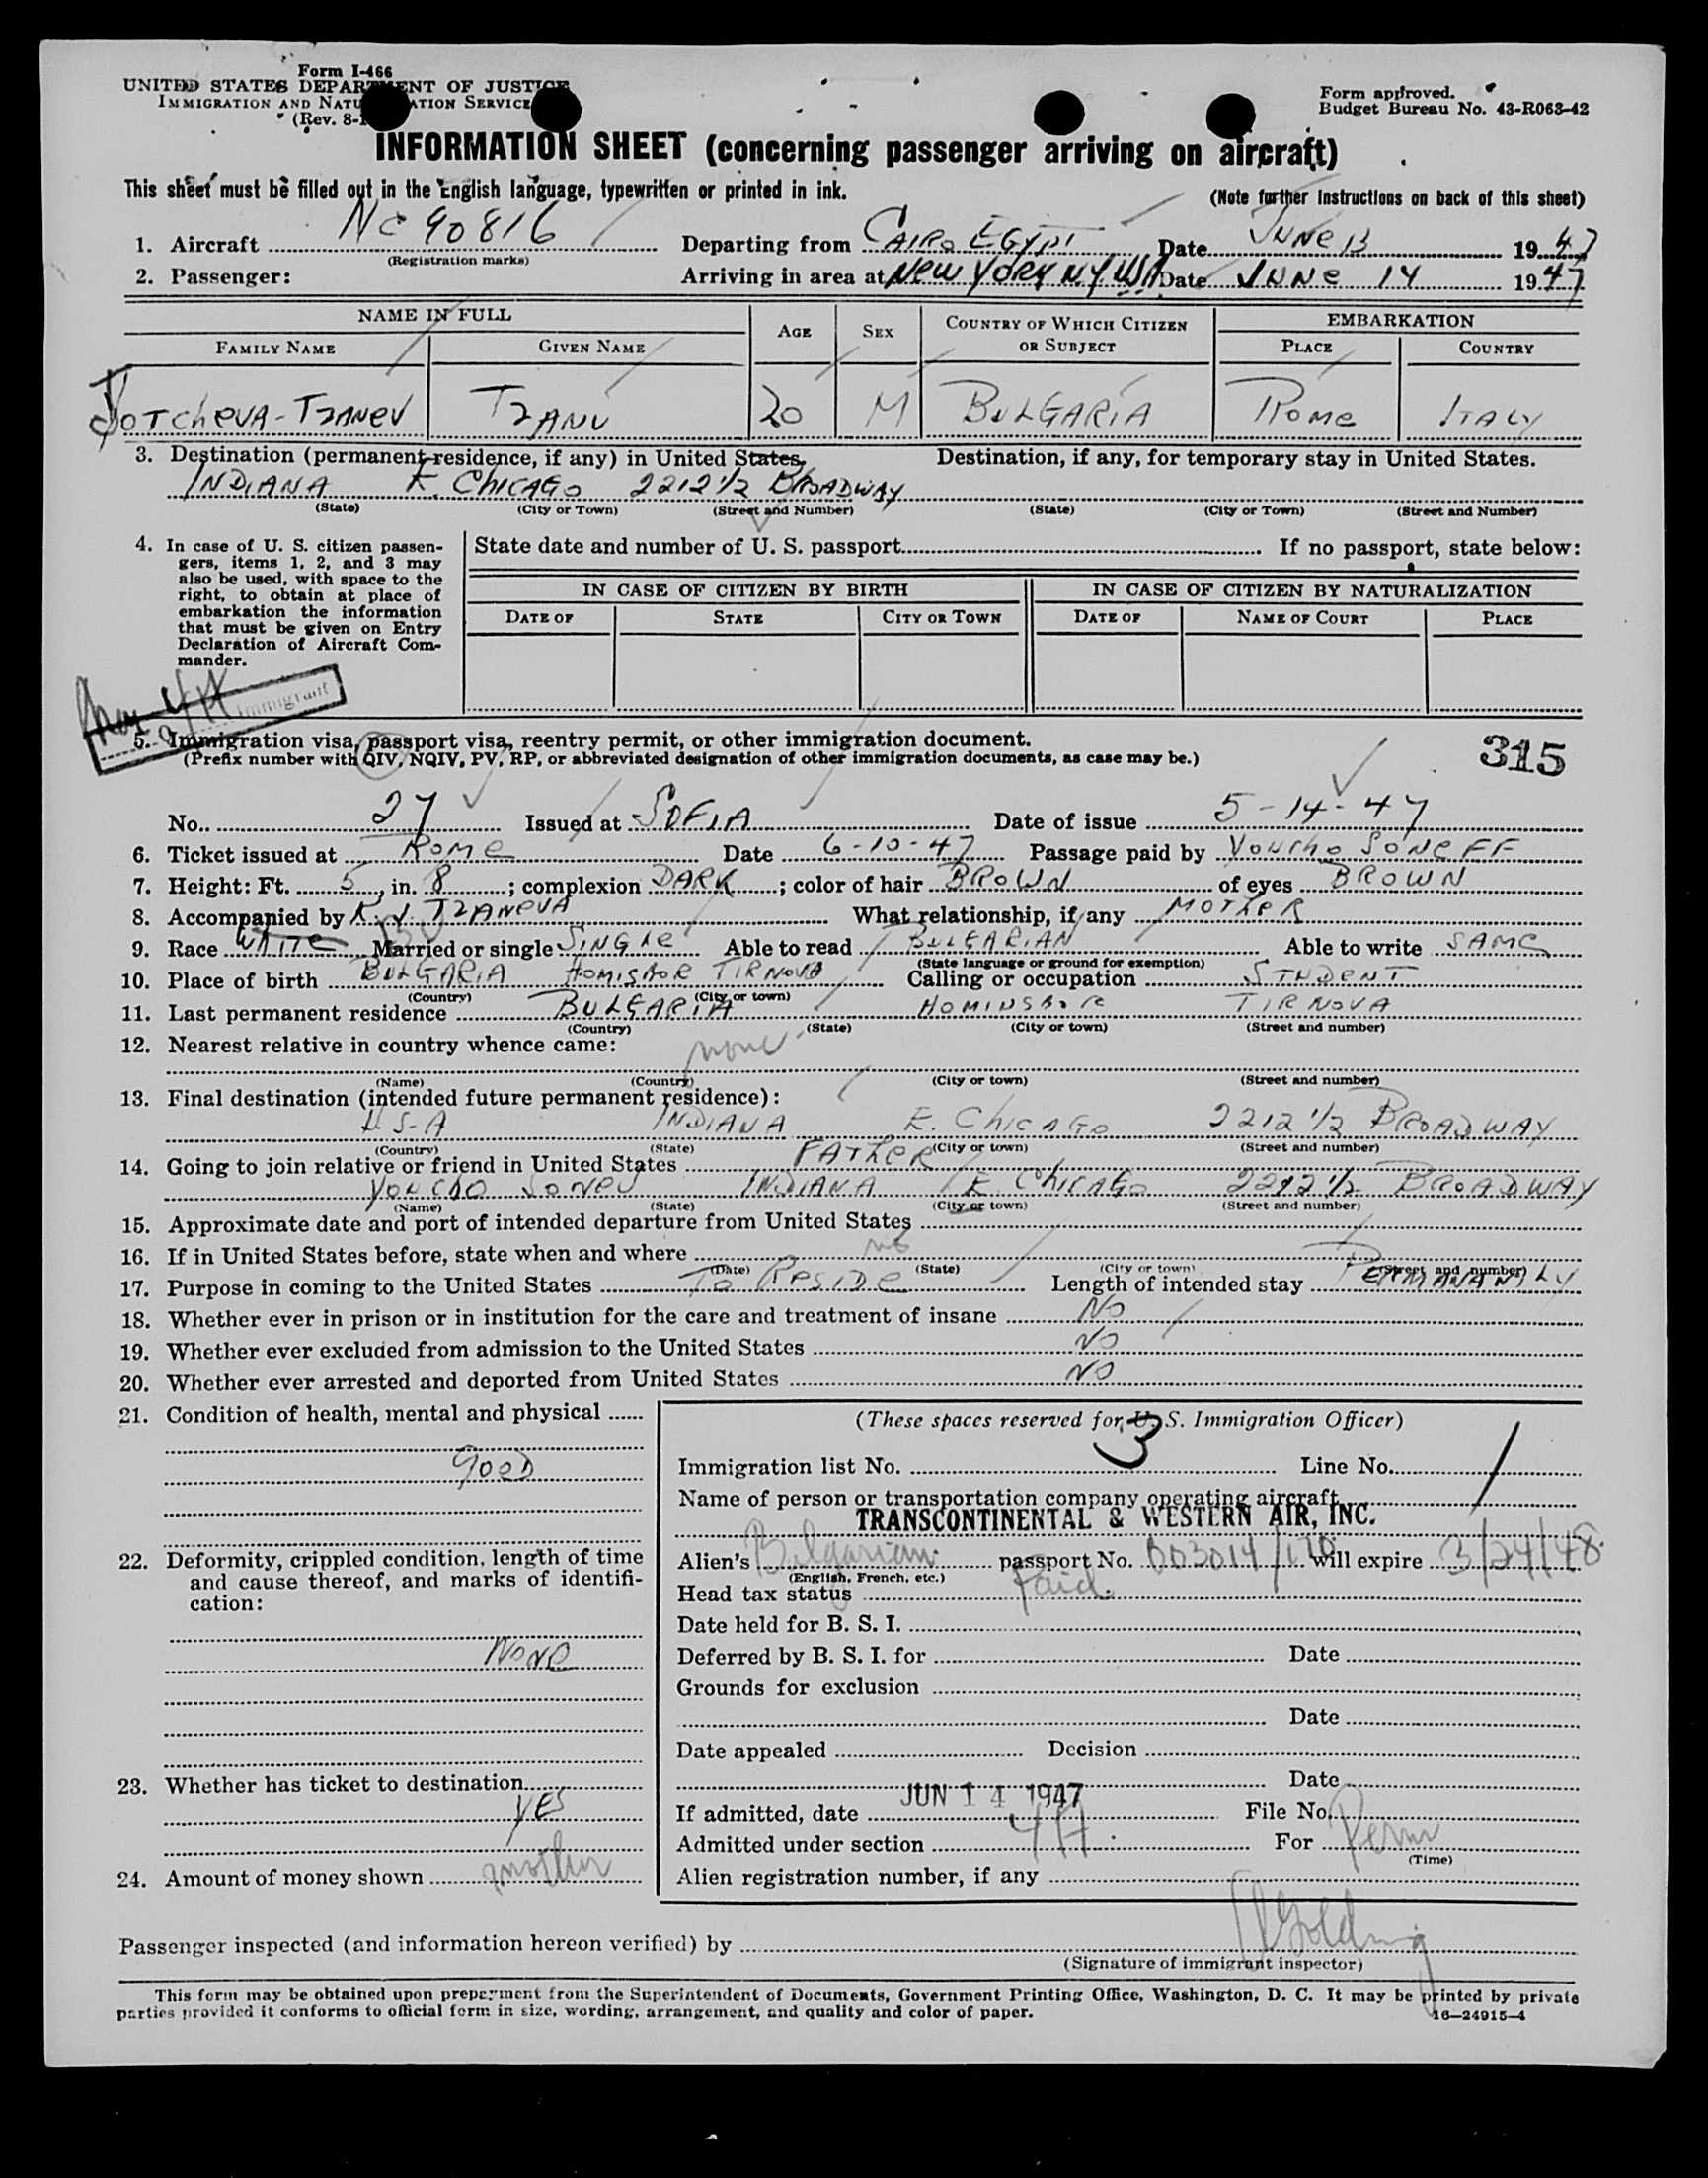 Form I-466
UNITED STATES DEPARTMENT OF JUSTICE
IMMIGRATION AND NATURALIZATION SERVICE
(Rev. 8-
Form approved.
Budget Bureau No. 43-R063-42
INFORMATION SHEET (concerning passenger arriving on aircraft)
This sheet must be filled out in the English language, typewritten or printed in ink. (Note further instructions on back of this sheet)
1. Aircraft NC 90816 Departing from CAIRO EGYPT Date JUNE 13 1947
(Registration marks)
2. Passenger: Arriving in area at NEW YORK NY USA Date JUNE 14 1947
NAME IN FULL AGE SEX COUNTRY OF WHICH CITIZEN OR SUBJECT EMBARKATION
FAMILY NAME GIVEN NAME PLACE COUNTRY
JOTCHEVA-TZANEV TZANU 20 M BULGARIA ROME ITALY
3. Destination (permanent residence, if any) in United States. Destination, if any, for temporary stay in United States.
INDIANA E. CHICAGO 2212 1/2 BROADWAY
(State) (City or Town) (Street and Number) (State) (City or Town) (Street and Number)
4. In case of U. S. citizen passengers, items 1, 2, and 3 may also be used, with space to the right, to obtain at place of embarkation the information that must be given on Entry Declaration of Aircraft Commander.
State date and number of U. S. passport If no passport, state below:
IN CASE OF CITIZEN BY BIRTH IN CASE OF CITIZEN BY NATURALIZATION
DATE OF STATE CITY OR TOWN DATE OF NAME OF COURT PLACE
Immigrant
5. Immigration visa, passport visa, reentry permit, or other immigration document.
(Prefix number with QIV, NQIV, PV, RP, or abbreviated designation of other immigration documents, as case may be.)
315
No. 27 Issued at SOFIA Date of issue 5-14-47
6. Ticket issued at ROME Date 6-10-47 Passage paid by VONCHO SONEFF
7. Height: Ft. 5, in. 8; complexion DARK; color of hair BROWN of eyes BROWN
8. Accompanied by K. J. TZANEVA What relationship, if any MOTHER
9. Race WHITE Married or single SINGLE Able to read BULGARIAN Able to write SAME
(State language or ground for exemption)
10. Place of birth BULGARIA HOMISBOR TIRNOVO Calling or occupation STUDENT
(Country) (City or town)
11. Last permanent residence BULGARIA HOMINSBOR TIRNOVA
(Country) (State) (City or town) (Street and number)
12. Nearest relative in country whence came: none
(Name) (Country) (City or town) (Street and number)
13. Final destination (intended future permanent residence):
U S-A INDIANA E. CHICAGO 2212 1/2 BROADWAY
(Country) (State) (City or town) (Street and number)
14. Going to join relative or friend in United States FATHER
VONCHO SONEV INDIANA E. CHICAGO 2212 1/2 BROADWAY
(Name) (State) (City or town) (Street and number)
15. Approximate date and port of intended departure from United States
16. If in United States before, state when and where no
(Date) (State) (City or town) (Street and number)
17. Purpose in coming to the United States TO RESIDE Length of intended stay PERMANANTLY
18. Whether ever in prison or in institution for the care and treatment of insane NO
19. Whether ever excluded from admission to the United States NO
20. Whether ever arrested and deported from United States NO
21. Condition of health, mental and physical
GOOD
22. Deformity, crippled condition, length of time and cause thereof, and marks of identification:
NONE
23. Whether has ticket to destination
YES
24. Amount of money shown mother
(These spaces reserved for U. S. Immigration Officer)
Immigration list No. 3 Line No. 1
Name of person or transportation company operating aircraft
TRANSCONTINENTAL & WESTERN AIR, INC.
Alien's Bulgarian passport No. 003014/170 will expire 3/24/48
(English, French, etc.)
Head tax status Paid
Date held for B. S. I.
Deferred by B. S. I. for Date
Grounds for exclusion
Date
Date appealed Decision
Date
If admitted, date JUN 14 1947 File No.
Admitted under section 4A For Perm
(Time)
Alien registration number, if any
Passenger inspected (and information hereon verified) by
(Signature of immigrant inspector)
This form may be obtained upon prepayment from the Superintendent of Documents, Government Printing Office, Washington, D. C. It may be printed by private
parties provided it conforms to official form in size, wording, arrangement, and quality and color of paper. 16—24915-4